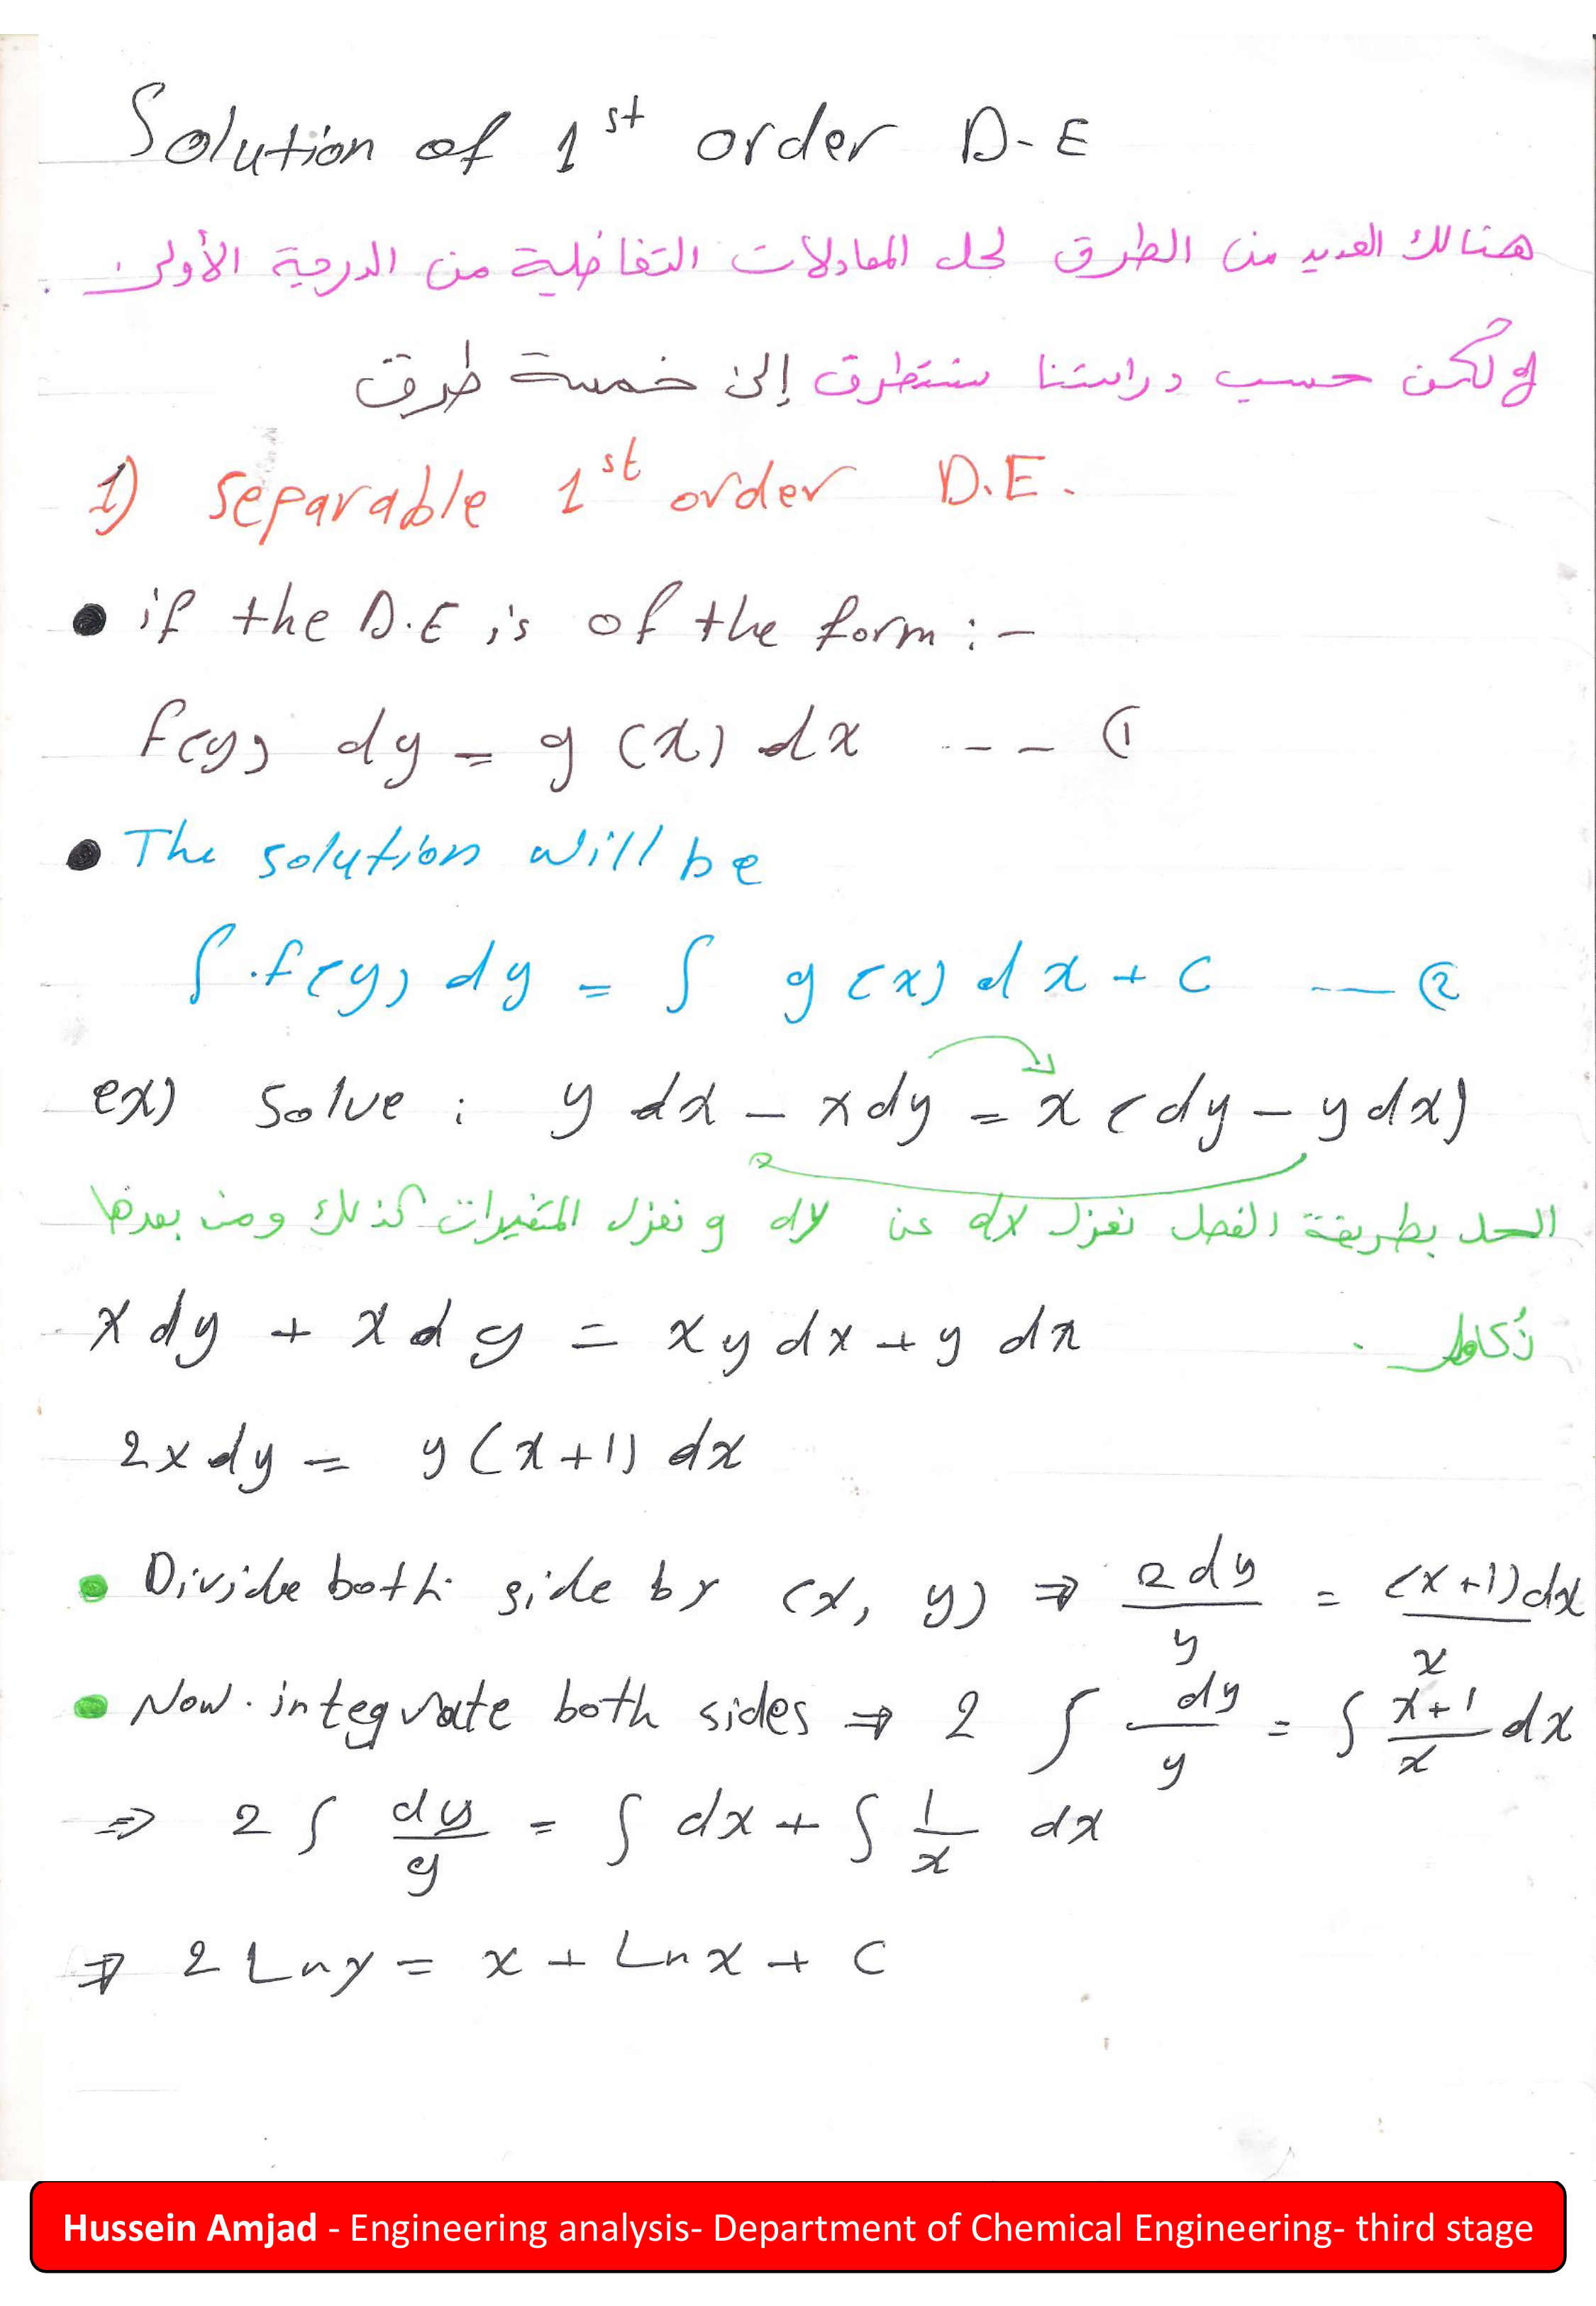 Solution of 1st order D-E
هنالك العديد من الطرق لحل المعادلات التفاضلية من الدرجة الأولى .
ولكن حسب دراستنا سنتطرق إلى خمسة طرق
1) Separable 1st order D.E.
● if the D.E is of the form :-
f(y) dy = g(x) dx --- ①
● The solution will be
∫ f(y) dy = ∫ g(x) dx + C --- ②
ex) Solve : y dx - x dy = x (dy - y dx)
الحل بطريقة الفصل نعزل dx عن dy و نعزل المتغيرات كذلك ومن بعدها
نكامل .
x dy + x dy = x y dx + y dx
2x dy = y (x+1) dx
● Divide both side by (x, y) ⇒ 2dy/y = (x+1)dx/x
● Now integrate both sides ⇒ 2 ∫ dy/y = ∫ x+1/x dx
⇒ 2 ∫ dy/y = ∫ dx + ∫ 1/x dx
⇒ 2 Ln y = x + Ln x + C
Hussein Amjad - Engineering analysis- Department of Chemical Engineering- third stage